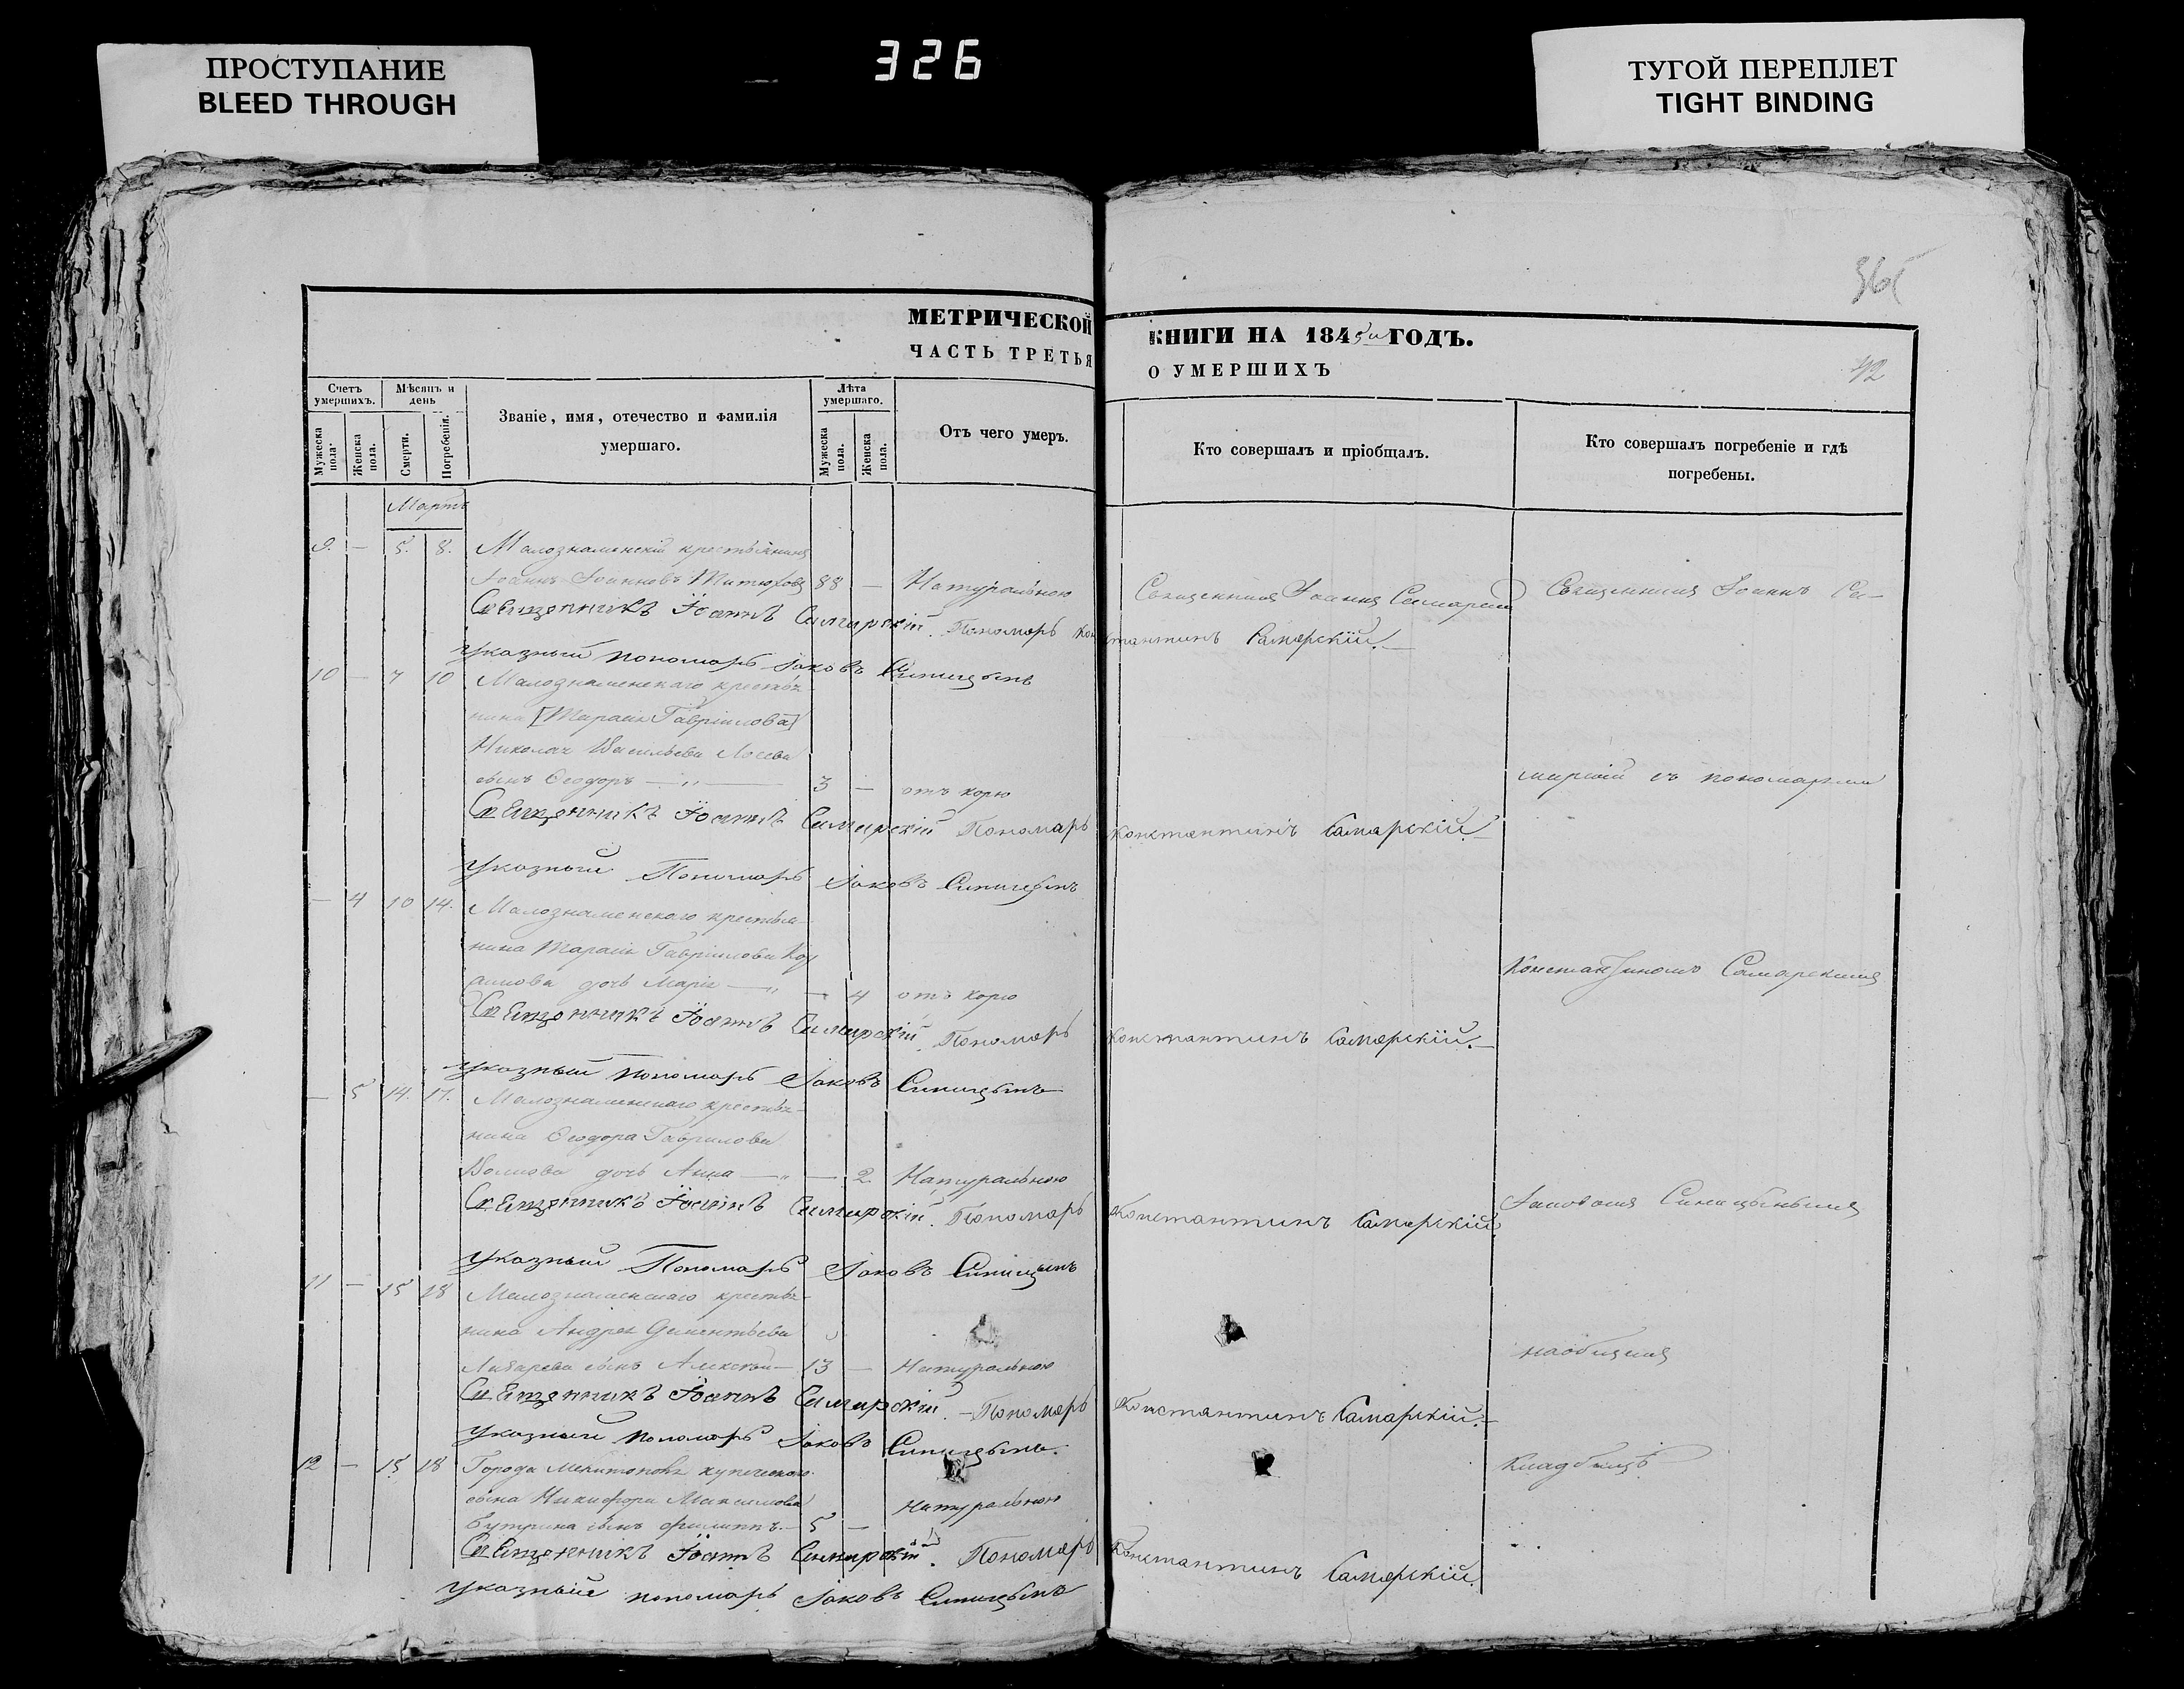 ПРОСТУПАНИЕ
BLEED THROUGH
326
ТУГОЙ ПЕРЕПЛЕТ
TIGHT BINDING
42
МЕТРИЧЕСКОЙ КНИГИ НА 1845й ГОДЪ.
ЧАСТЬ ТРЕТЬЯ О УМЕРШИХЪ
Счетъ умершихъ.
Мужеска пола.
Женска пола.
Мѣсяцъ и день
Смерти.
Погребенія.
Званіе, имя, отечество и фамилія
умершаго.
Лѣта умершаго.
Мужеска пола.
Женска пола.
Отъ чего умеръ.
Кто совершал и пріобщалъ.
Кто совершалъ погребеніе и гдѣ
погребены.
Мартъ
9. — 5. 8. Малознаменскій крестьянинъ
Іоаннъ Іоанновъ Титюховъ 88 — Натуральною Священникъ Іоаннъ Самарскій Священникъ Іоаннъ Са-
Священникъ Іоаннъ Самарскій. Пономарь Константинъ Самарскій.
Указный пономарь Іаковъ Синицынъ
10 — 7 10 Малознаменскаго крестья
нина [Тарасія Гавріилова]
Николая Васильева Лосева
сынъ Ѳеодоръ — 3 — отъ корю марскій съ пономарями
Священникъ Іоаннъ Самарскій Пономарь Константинъ Самарскій.
Указный Пономарь Іаковъ Синицынъ
— 4 10 14. Малознаменскаго крестья-
нина Тарасія Гавріилова Коз
дочь Марія — — 4 отъ корю Константиномъ Самарскимъ
Священникъ Іоаннъ Самарскій. Пономарь Константинъ Самарскій.
Указный пономарь Іаковъ Синицынъ
— 5 14. 17. Малознаменскаго крестья-
нина Ѳеодора Гаврилова
Волкова дочь Анна — — 2. Натуральною Іаковомъ Синицынымъ
Священникъ Іоаннъ Самарскій. Пономарь Константинъ Самарскій.
Указный Пономарь Іаковъ Синицынъ
11 — 15 18 Малознаменскаго крестья-
нина Андрея Дементьева
сынъ Алексѣй — 13 — Натуральною на общемъ
Священникъ Іоаннъ Самарскій. — Пономарь Константинъ Самарскій.
Указный пономарь Іаковъ Синицынъ.
12 — 15 18 Города Мелитополя купеческаго кладбищѣ
сына Никифора Максимова Натуральною
сынъ Филиппъ. — 5 —
Священникъ Іоаннъ Самарскій. Пономарь Константинъ Самарскій.
Указный пономарь Іаковъ Синицынъ